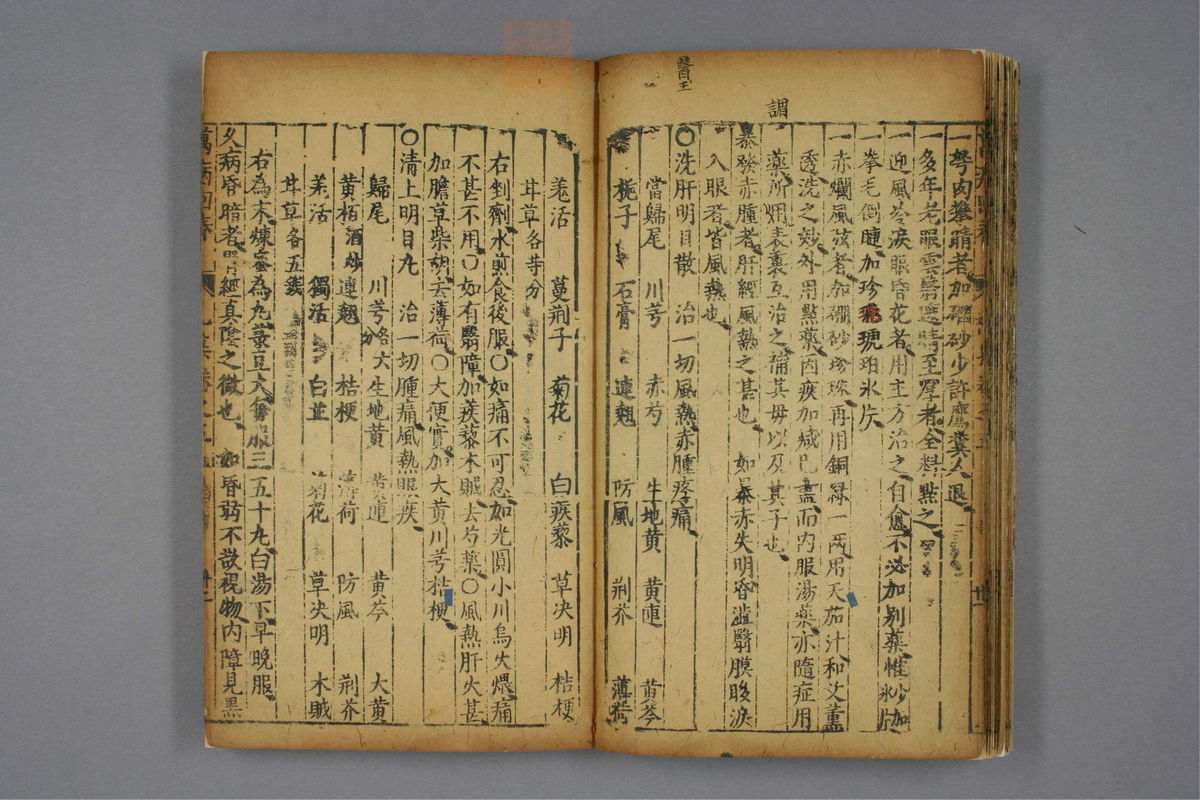 醫王
謂
一努肉攀睛者加硼砂少許鷹糞人退
一多年老眼雲翳遮睛至厚者全料點之
迎風冷淚眼昏花者用主方治之自愈不必加别藥惟
拳毛倒睫加珍珠琥珀氷片
一赤爛風弦者加硼砂珍珠再用銅緑一兩用天茄汁和艾薰
透洗之妙外用點藥因疾加减已盡而内服湯藥亦隨症用
藥所謂表裏互治之補其母以及其子也
暴發赤腫者肝經風熱之甚也 如暴赤失明昏澁翳膜眵淚
入眼者皆風熱也
〇洗肝明目散 治一切風熱赤腫疼痛
當歸尾 川芎 赤芍 生地黄 黄連 黄芩
梔子 石膏 連翹 防風 荆芥 薄荷
羌活 蔓荆子 菊花 白蒺藜 草决明 桔梗
甘草各等分
右剉劑水煎食後服〇如痛不可忍如光圓小川烏火煨痛
不甚不用〇如有翳障加蒺藜木賊去芍藥〇風熱肝火甚
加膽草柴胡去薄荷〇大便實加大黄川芎桔梗
〇清上明目丸 治一切腫痛風熱眼疾
歸尾 川芎各六分 生地黄 黄連 黄芩 大黄
黄栢酒炒 連翹 桔梗 薄荷 防風 荆芥
羌活 獨活 白芷 菊花 草决明 木賊
甘草各五錢
右為末煉蜜為丸菉豆大每服三五十丸白湯下早晚服
久病昏暗者腎經真隂之微也 如昏弱不欲視物内障見黒
萬病回春